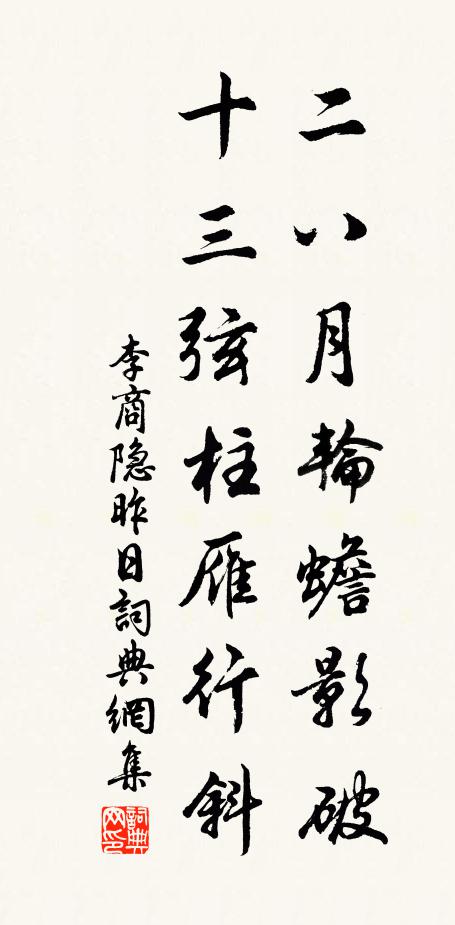 二八月輪蟾影破
十三弦柱雁行斜
李商隐昨日詞典網集
詞典网印